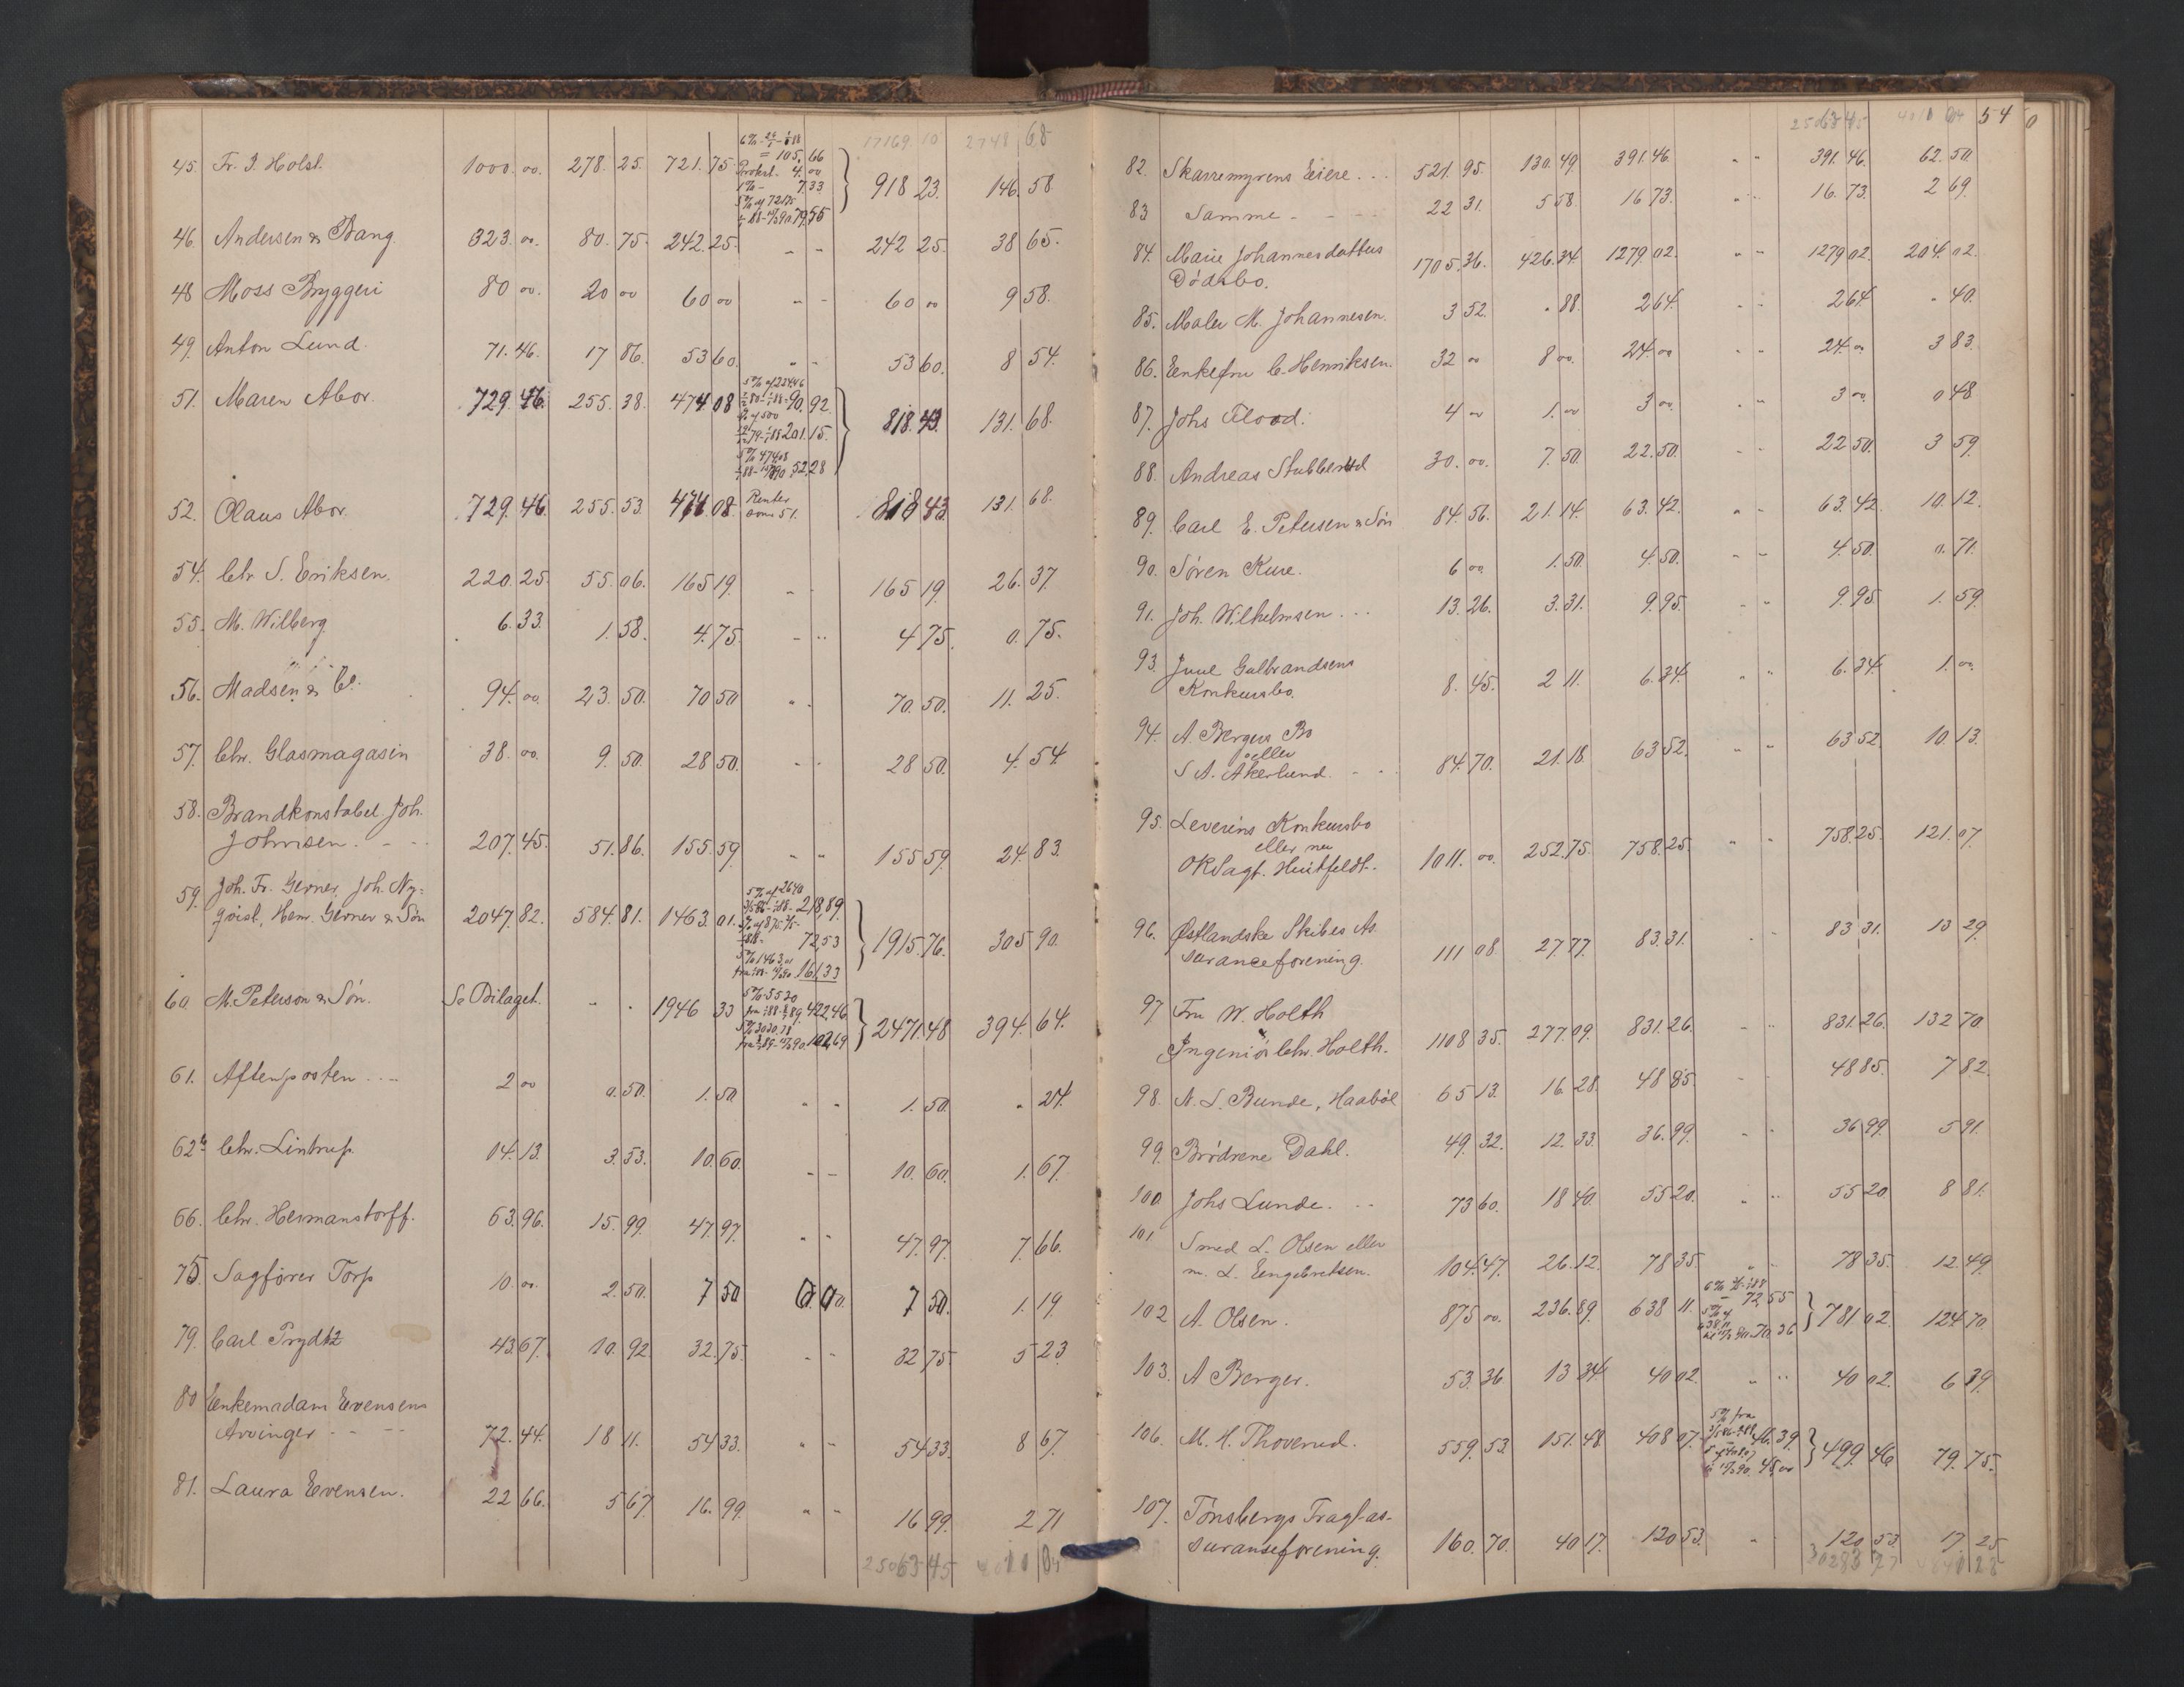 17169 10 2748 68
6%
= 105,66
45. Fr. J. Holst. 1000.00. 278.25. 721.75 Prokst. 4.00 918 23. 146.58
1% - 7.33
5% af 72175
79,55
46. Andersen & Bang. 323.00. 80.75. 242.25. - - 242 25. 38 65.
48 Moss Bryggeri 80 00. 20 00 60 00 - - 60 00 9 58.
49. Anton Lund. 71.46. 17 86. 53 60. " - 53 60. 8 54.
51. Maren Abor. 729.46. 255.38. 474 08 90,92. 818.43. 131.68.
af 500
201.15.
5% 474,08
52,28
52. Olaus Abor. 729.46. 255.53. 474.08. Renter 818 43. 131.68.
som 51.
54. Chr S. Eriksen. 220.25. 55.06. 165 19. - - 165 19. 26.37.
55. M. Wilberg 6.33. 1.58. 4.75. - " 4 75. 0.75.
56. Madsen & Co. 94.00. 23.50. 70 50 " - 70.50. 11.25.
57. Chr. Glasmagasin 38.00. 9.50. 28 50. - - 28 50. 4.54
58. Brandkonstabel Joh.
Johnsen. - - 207.45. 51.86. 155.59 " " 155 59. 24.83.
59. Joh. Fr. Gerner, Joh. Ny= 5% af 2640
qvist, Henr. Gerner & Søn 2047.82. 584.81. 1463.01. 218,89. 1915.76. 305 90.
72,53
5% 1463,01
161,33
60. M. Peterson & Søn. Se Bilaget. - - 1946 33 5% 5520 2471.48 394.64.
422,46
102,69
61. Aftenposten ... 2 00 0.50. 1.50 " " 1.50. " 24.
62b Chr. Lintrup. 14.13. 3.53. 10.60. - - 10.60. 1.67.
66. Chr. Hermanstorff. 63.96. 15.99. 47.97. " " 47.97. 7.66.
75. Sagfører Torp 10.00. 2.50. 7 50 0.00. 7 50. 1.19
79. Carl Prydtz 43.67. 10.92 32.75. - - 32 75. 5 23.
80 Enkemadam Evensens
Arvinger - - 72.44. 18 11. 54 33. " - 54 33. 8 67.
81. Laura Evensen. 22 66. 5 67. 16.99. " - 16 99. 2 71
25063 45 4010 04
25063 45 4010 04 54 0
82. Skarremyrens Eiere... 521.95. 130.49. 391.46. " " 391.46. 62.50.
83 Samme - - - 22 31. 5 58. 16 73. " " 16.73. 2 69.
84. Marie Johannesdatters
Dödsbo. 1705.36. 426.34. 1279.02. " " 1279 02. 204.02.
85. Maler M. Johannesen. 3 52. " 88. 2 64. - - 2 64. " 40.
86. Enkefru C. Henriksen. 32 00 8 00. 24.00 - - 24.00 3 83.
87. Johs Flood. 4 00 1.00 3 00. - " 3 00. 0 48
88. Andreas Stubberud 30.00. 7.50. 22.50. - - 22 50. 3 59.
89. Carl E. Petersen & Søn 84.56. 21.14. 63.42. " - 63.42. 10.12.
90. Søren Kure. 6 00. 1.50. 4.50. - - 4.50. 0.71.
91. Joh. Wilhelmsen... 13.26. 3.31. 9.95. - " 9.95. 1.59.
93. Juul Gulbrandsens
Konkursbo. 8.45. 2 11. 6.34. " " 6.34. 1.00.
94. A. Bergers Bo
eller
S A. Akerlund. - - 84.70. 21.18. 63 52. " " 63 52. 10.13.
95. Leverins Konkursbo
eller nu
ORSagf. Huitfeldt. 1011.00. 252.75. 758.25. " " 758.25. 121.07.
96. Østlandske Skibs As.
suranceforening. 111 08. 27.77. 83.31. - - 83 31. 13 29.
97 Fru W. Holth
Ingeniör Chr. Holth. 1108 35. 277.09. 831.26. - " 831.26. 132 70.
98. N. S. Bunde, Haabøl 65 13. 16 28. 48 85. - - 48 85. 7 82.
99. Brödrene Dahl. 49.32. 12.33. 36.99. - " 36 99. 5 91.
100 Johs Lunde. - - 73 60. 18 40. 55 20. " " 55 20. 8 81.
101 Smed L. Olsen eller
m. L. Engebretsen. 104.47. 26.12. 78 35. " - 78 35. 12 49.
102 A. Olsen. 875 00. 236.89. 638 11. 72,55 781 02. 124 70.
70.36
103. A Berger. 53.36 13 34. 40 02. " " 40 02. 6 39.
106. M. A. Thoverud. 559 53. 151.48. 408 07. 5% fra 499.46 79.75.
46.39
45,00
107. Tønsbergs Fragtas-
suranseforening. 160.70. 40 17. 120 53. - 120 53. 17.25.
30283 27 4840 28